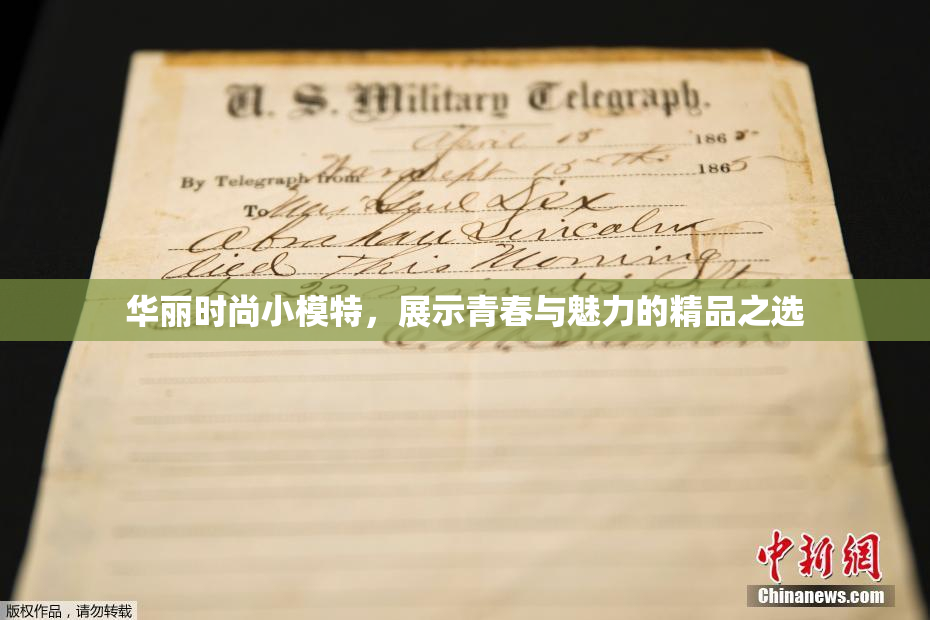 U. S. Military Telegraph.
April 15 1865
By Telegraph from War Dept 15th 1865
To Maj Genl Dix
Abraham Lincoln
died This Morning
at 22 minutes after
华丽时尚小模特，展示青春与魅力的精品之选
E. M. Stanton
中新网
Chinanews.com
版权作品，请勿转载